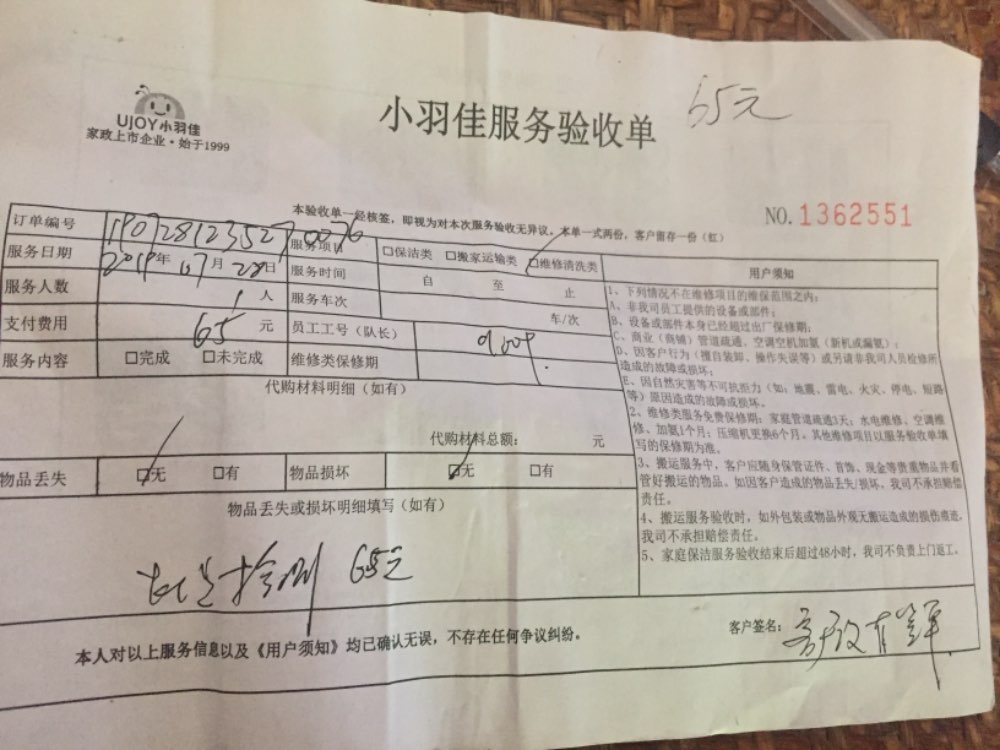 UJOY小羽佳
家政上市企业·始于1999
小羽佳服务验收单
65元
本验收单一经核签，即视为对本次服务验收无异议。本单一式两份，客户留存一份（红）
NO. 1362551
订单编号 1907281235270076 服务项目 □保洁类 □搬家运输类 □维修清洗类
服务日期 2019年07月28日 服务时间 自 至 止
服务人数 1人 服务车次 车/次
支付费用 65元 员工工号（队长）
服务内容 □完成 □未完成 维修类保修期
代购材料明细（如有）
代购材料总额： 元
物品丢失 □无 □有 物品损坏 □无 □有
物品丢失或损坏明细填写（如有）
检测 65元
用户须知
1、下列情况不在维修项目的维保范围之内：
A、非我司员工提供的设备或部件；
B、设备或部件本身已经超过出厂保修期；
C、商业（商铺）管道疏通、空调空机加氨（新机或漏氨）；
D、因客户行为（擅自装卸、操作失误等）或另请非我司人员检修所
造成的故障或损坏；
E、因自然灾害等不可抗拒力（如：地震、雷电、火灾、停电、短路
等）原因造成的故障或损坏。
2、维修类服务免费保修期：家庭管道疏通3天；水电维修、空调维
修、加氨1个月；压缩机更换6个月。其他维修项目以服务验收单填
写的保修期为准。
3、搬运服务中，客户应随身保管证件、首饰、现金等贵重物品并看
管好搬运的物品。如因客户造成的物品丢失/损坏，我司不承担赔偿
责任。
4、搬运服务验收时，如外包装或物品外观无搬运造成的损伤痕迹，
我司不承担赔偿责任。
5、家庭保洁服务验收结束后超过48小时，我司不负责上门返工。
本人对以上服务信息以及《用户须知》均已确认无误，不存在任何争议纠纷。
客户签名：